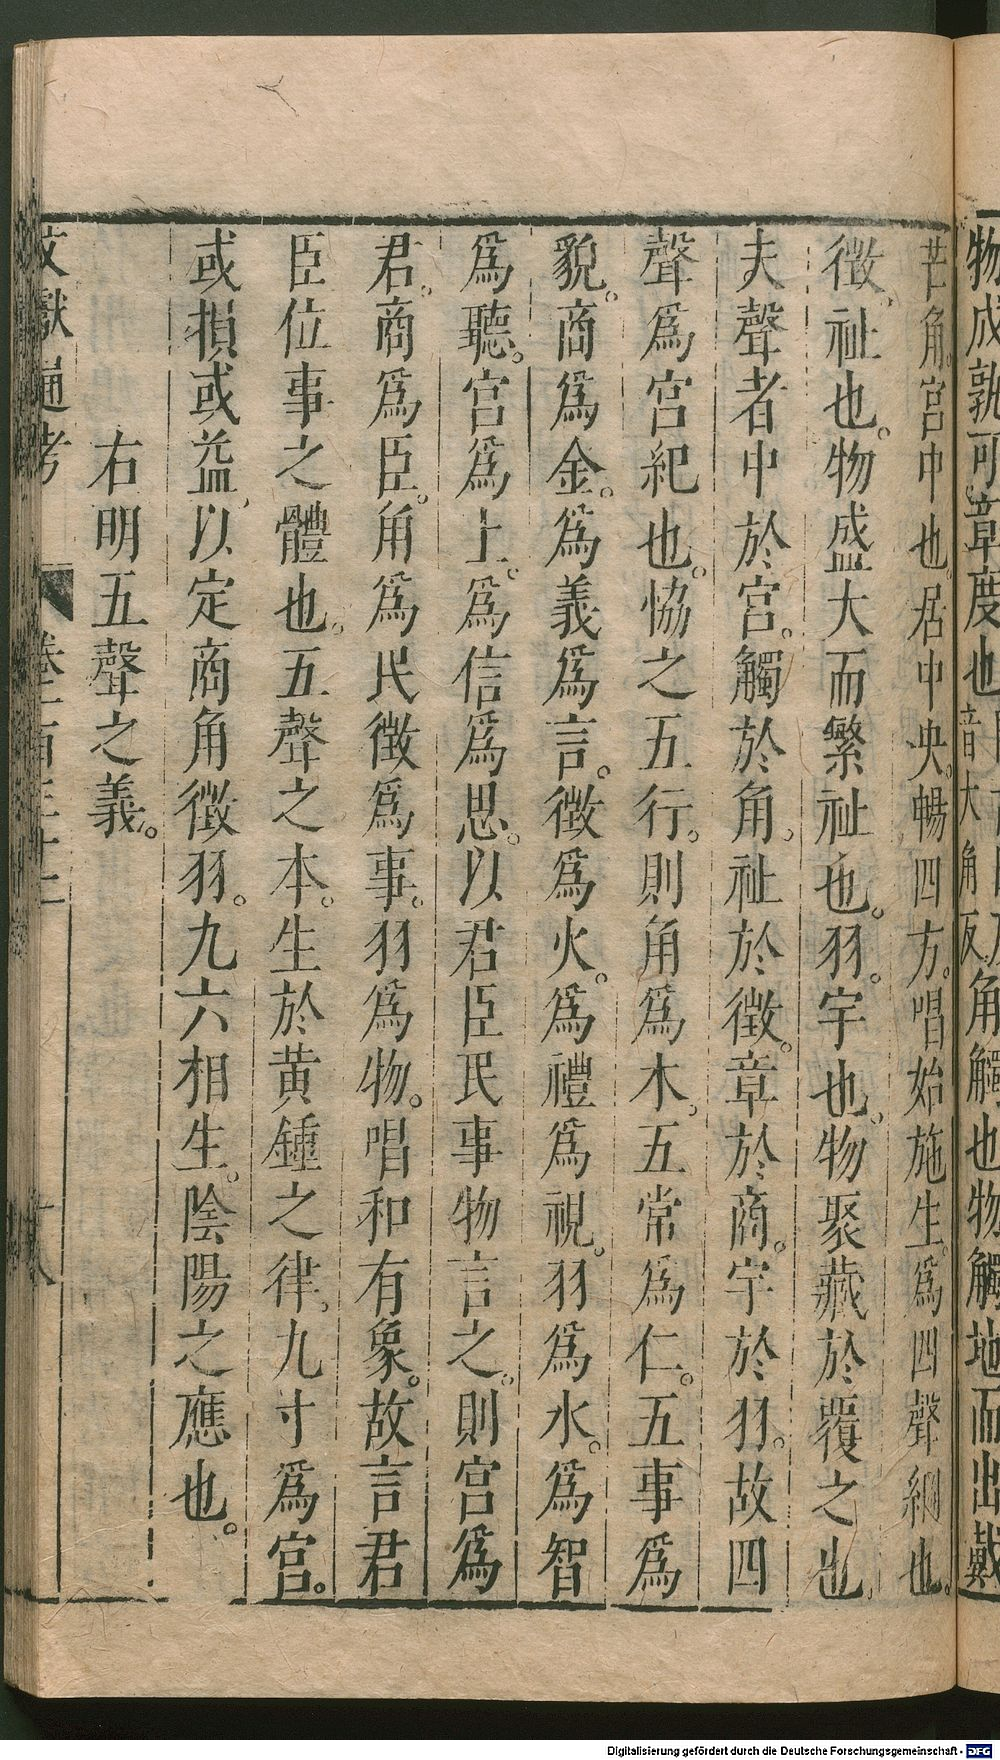 物成孰可章度也
音大角反
角觸也物觸地而出戴
芒角宮中也居中央暢四方。唱始施生。爲四聲綱也。
徵。祉也。物盛大而繁祉也。羽。宇也。物聚藏於覆之也
夫聲者中於宮。觸於角。祉於徵。章於商。宇於羽。故四
聲爲宮紀也。恊之五行。則角爲木。五常爲仁。五事爲
貌。商爲金。爲義爲言。徵爲火。爲禮爲視。羽爲水。爲智
爲聽。宮爲土。爲信爲思。以君臣民事物言之。則宮爲
君。商爲臣。角爲民徵爲事。羽爲物。唱和有象。故言君
臣位事之體也。五聲之本。生於黃鍾之律。九寸爲宮。
或損或益。以定商角徵羽。九六相生。陰陽之應也。
右明五聲之義。
文獻通考